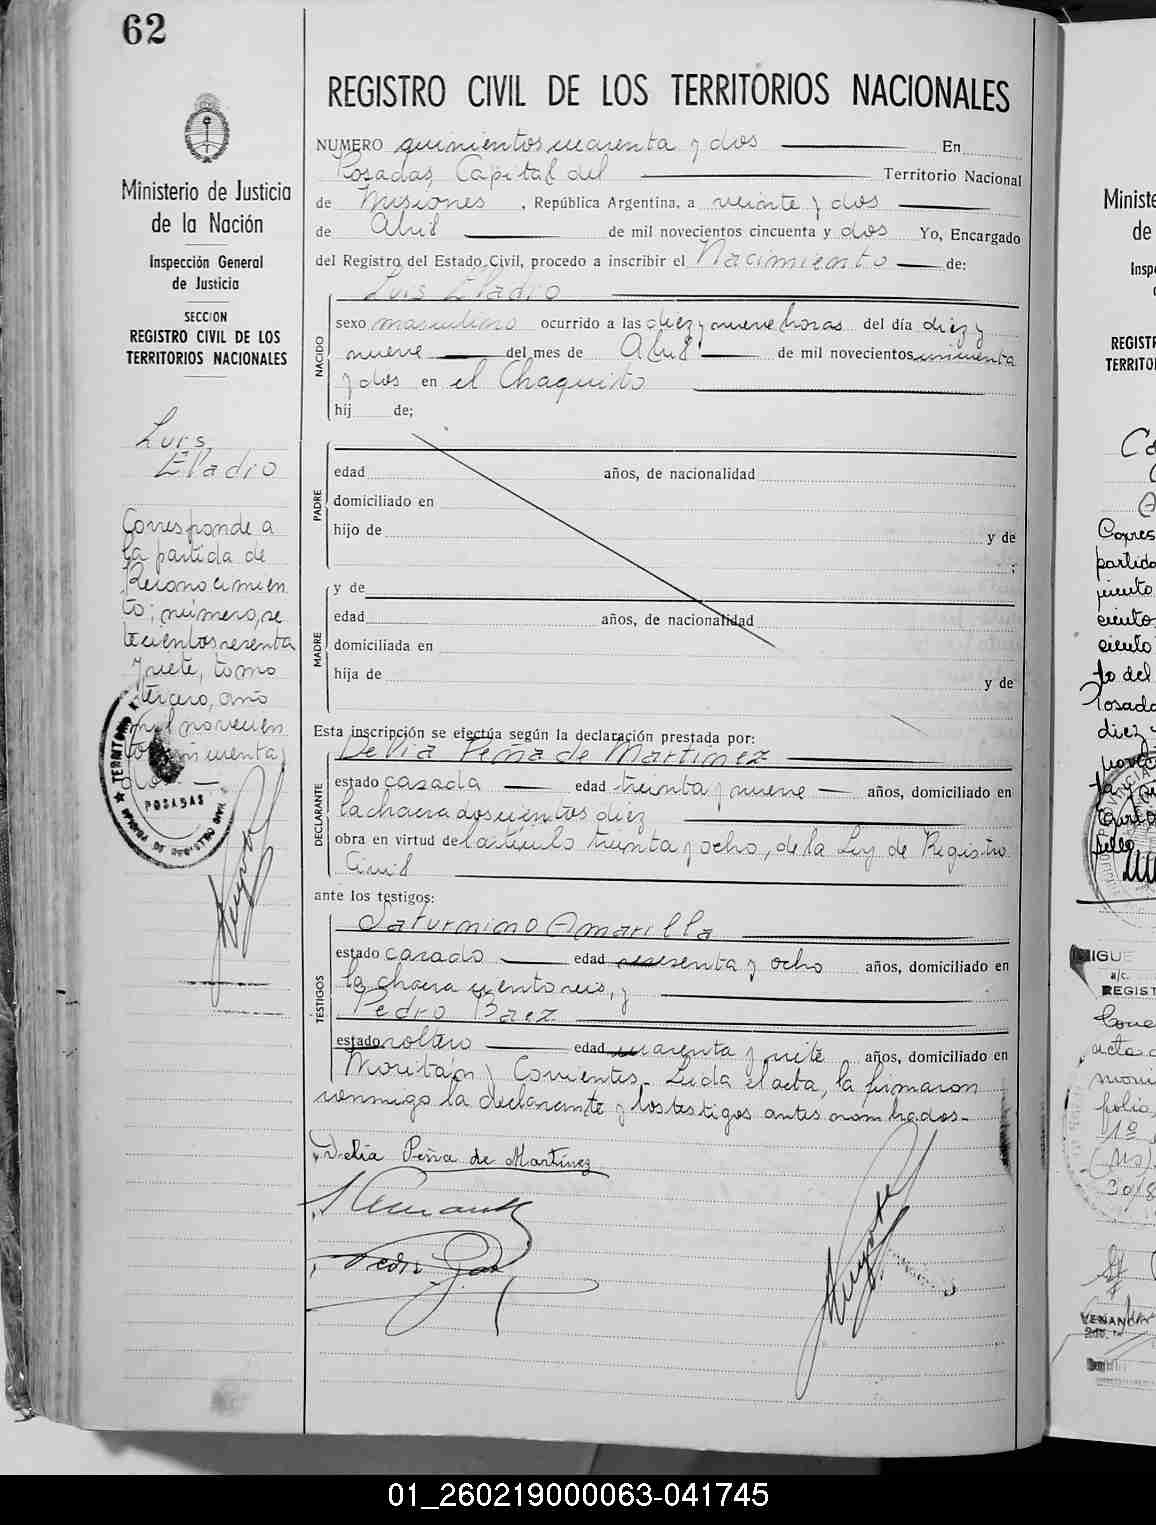 62
Ministerio de Justicia
de la Nación
Inspección General
de Justicia
SECCION
REGISTRO CIVIL DE LOS
TERRITORIOS NACIONALES
Luis
Eladio
Corresponde a
la partida de
Reconocimien
to; número, se
tecientos sesenta
y siete, tomo
tercero, año
mil novecien
tos cincuenta y
dos —
POSADAS
REGISTRO CIVIL DE LOS TERRITORIOS NACIONALES
NUMERO quinientos cuarenta y dos En
Posadas, Capital del Territorio Nacional
de Misiones, República Argentina, a veinte y dos
de Abril de mil novecientos cincuenta y dos Yo, Encargado
del Registro del Estado Civil, procedo a inscribir el Nacimiento de:
Luis Eladio
NACIDO
sexo masculino ocurrido a las diez y nueve horas del día diez y
nueve del mes de Abril de mil novecientos cincuenta
y dos en el Chaquito
hij de;
PADRE
edad años, de nacionalidad
domiciliado en
hijo de y de
;
MADRE
y de
edad años, de nacionalidad
domiciliada en
hija de y de
Esta inscripción se efectúa según la declaración prestada por:
DECLARANTE
Delia Peña de Martínez
estado casada edad treinta y nueve años, domiciliado en
la chacra doscientos diez
obra en virtud del artículo treinta y ocho, de la Ley de Registro
Civil
ante los testigos:
TESTIGOS
Saturnino Amarilla
estado casado edad sesenta y ocho años, domiciliado en
la chacra ciento seis, y
Pedro Baez
estado soltero edad cuarenta y siete años, domiciliado en
Corrientes. Leida el acta, la firmaron
conmigo la declarante y los testigos antes nombrados.
Delia Peña de Martínez
01_260219000063-041745